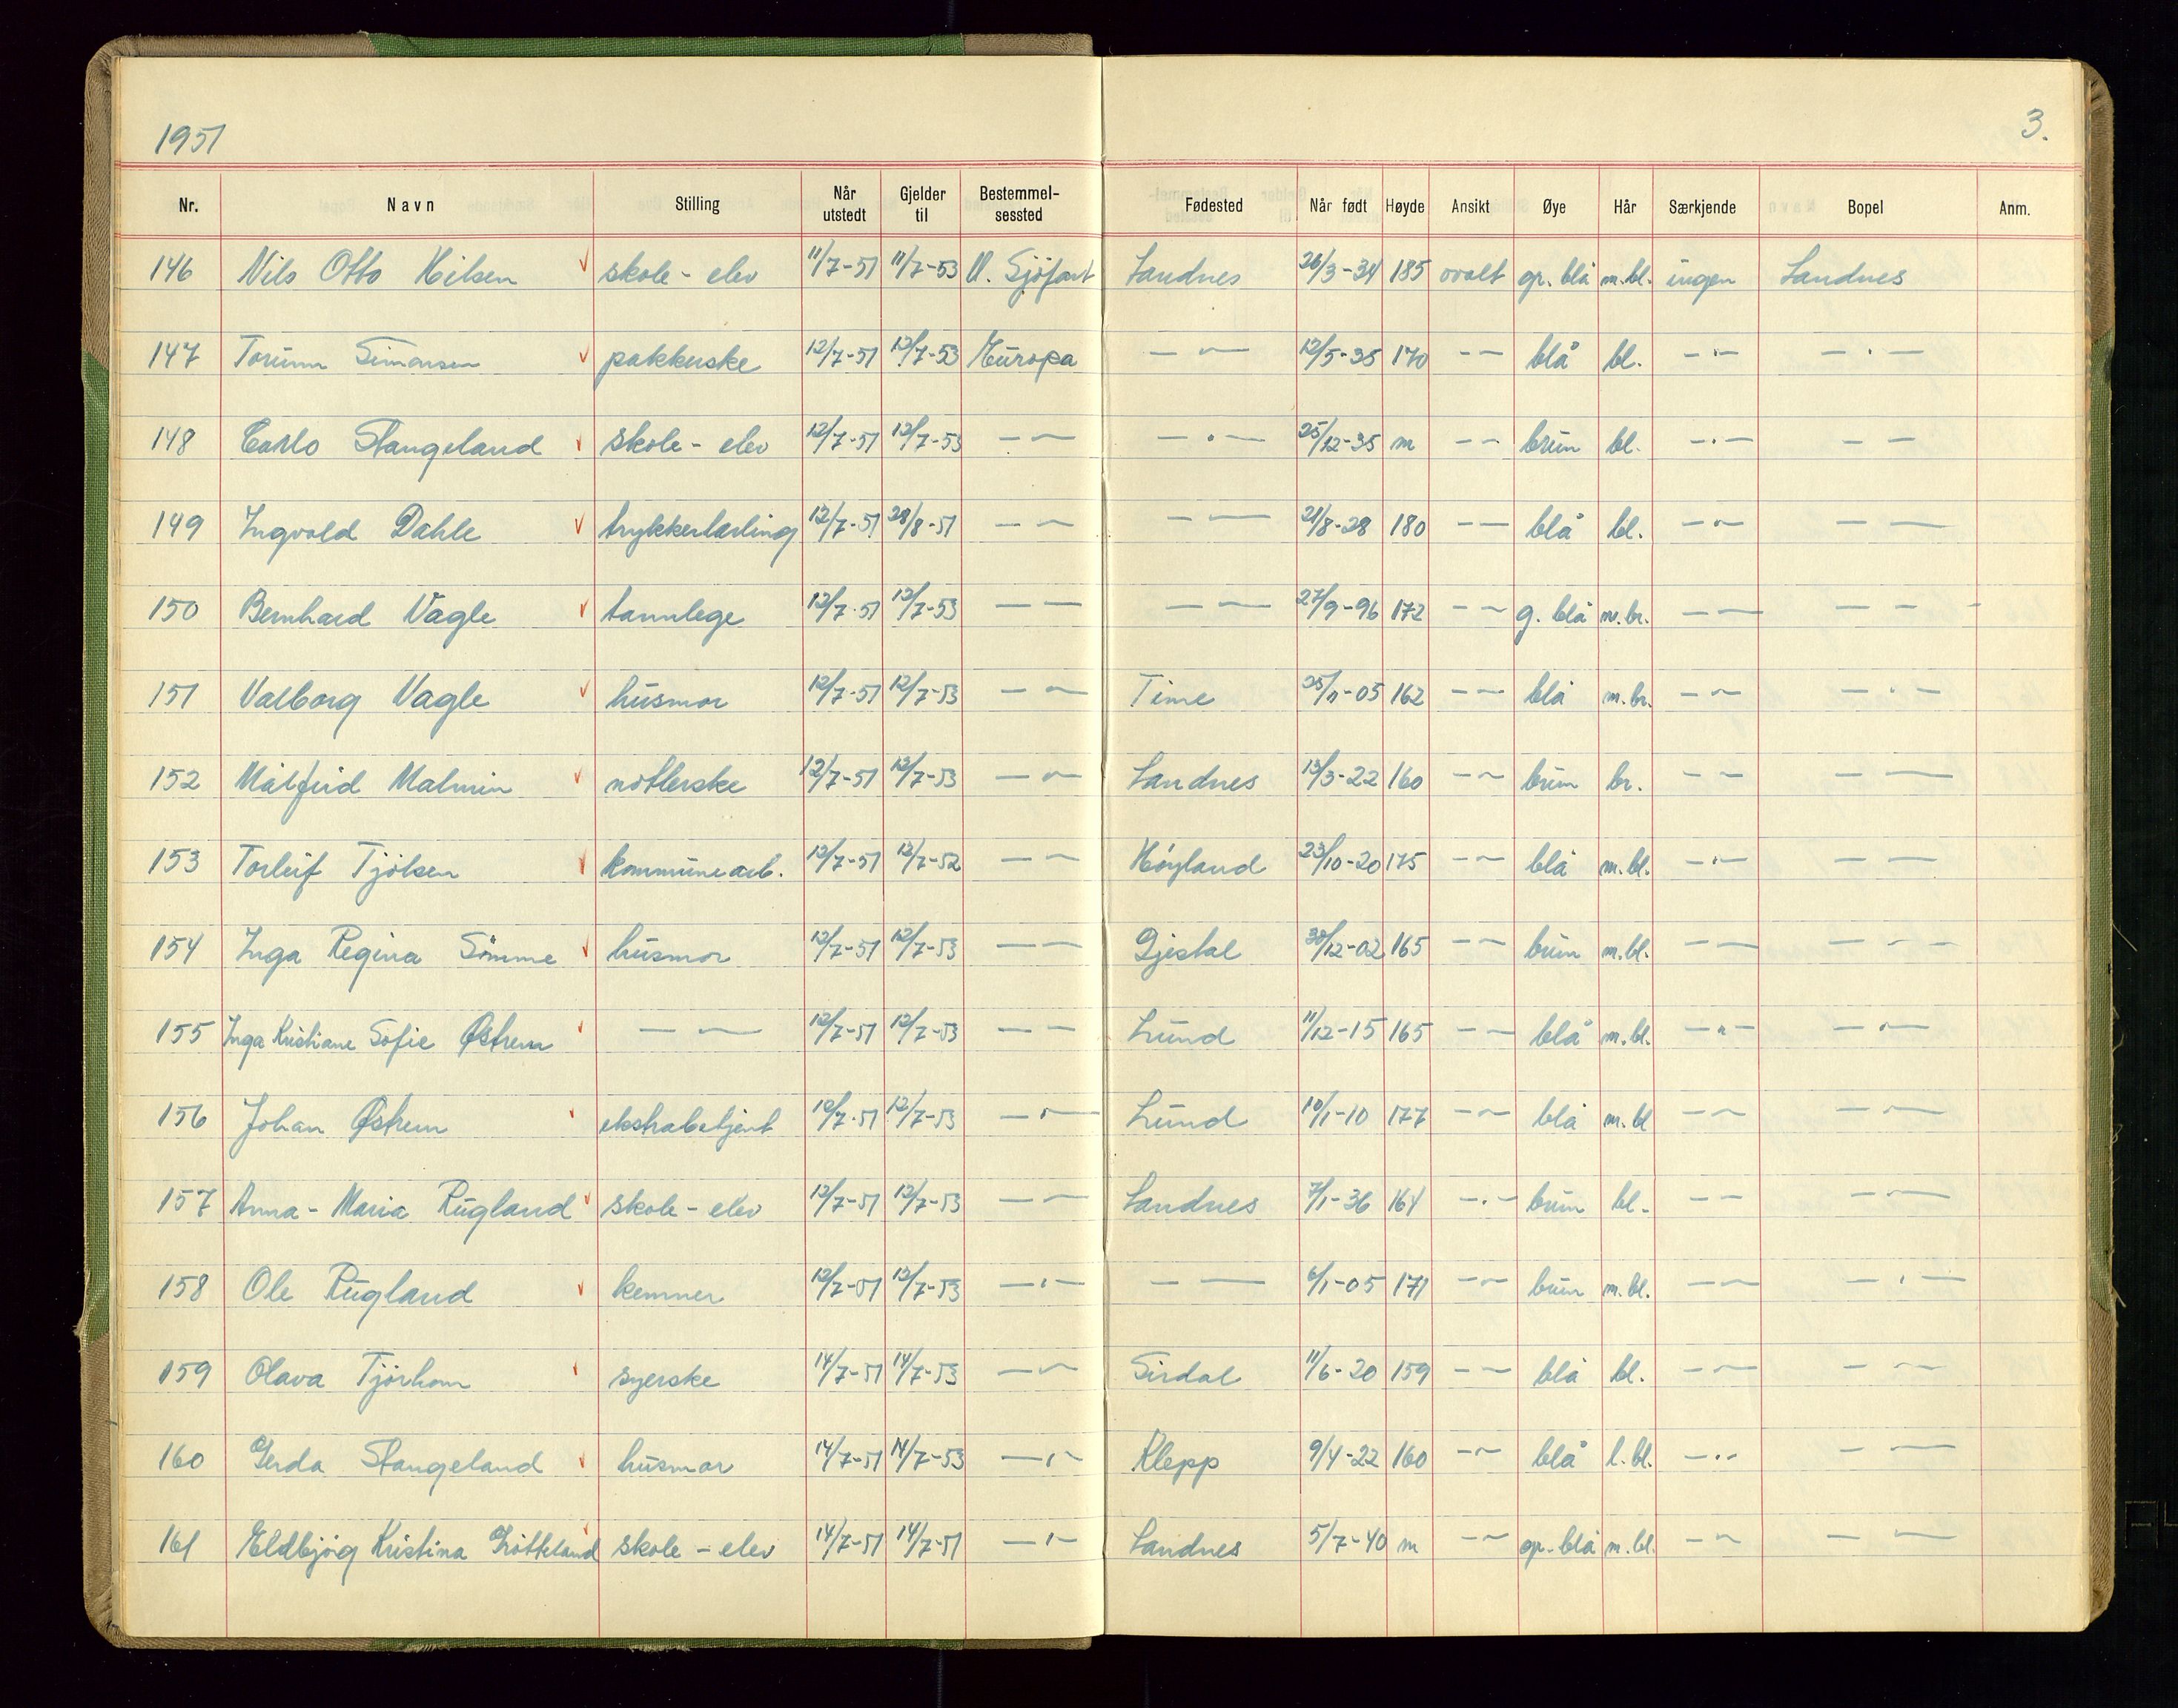 1951
3.
Nr. Navn Stilling Når utstedt Gjelder til Bestemmelsessted Fødested Når født Høyde Ansikt Øye Hår Særkjende Bopel Anm.
146 Nils Otto Nilsen skole-elev 11/7-51 11/7-53 U. Sjøfart Sandnes 26/3-34 185 ovalt gr. blå m.bl. ingen Sandnes
147 Torunn Simonsen pakkerske 12/7-51 12/7-53 Europa — — 12/5-35 170 — — blå bl. — " — — " —
148 Carlo Stangeland skole-elev 12/7-51 12/7-53 — — — " — 25/12-35 m — — brun bl. — " — — —
149 Ingvald Dahle trykkerlærling 12/7-51 28/8-51 — — — — 21/8-28 180 — — blå bl. — — — —
150 Bernhard Vagle tannlege 12/7-51 12/7-53 — — — — 27/9-96 172 — — g. blå m.br. — — — —
151 Valborg Vagle husmor 12/7-51 12/7-53 — — Time 25/11-05 162 — — blå m.br. — — — " —
152 Målfrid Malmin nøtlerske 12/7-51 12/7-53 — — Sandnes 13/3-22 160 — — brun br. — — — —
153 Torleif Tjølsen kommunearb. 12/7-51 12/7-52 — — Høyland 23/10-20 175 — — blå m.bl. — " — — —
154 Inga Regina Sømme husmor 12/7-51 12/7-53 — — Gjestal 30/12-02 165 — — brun m.bl. — — — — —
155 Inga Kristiane Sofie Østrem — — 12/7-51 12/7-53 — — Lund 11/12-15 165 — — blå m.bl. — " — — " —
156 Johan Østrem ekstrabetjent 12/7-51 12/7-53 — " — Lund 10/1-10 177 — — blå m.bl — — — —
157 Anna-Maria Rugland skole-elev 12/7-51 12/7-53 — — Sandnes 7/1-36 164 — " — brun bl. — — — —
158 Ole Rugland kemner 12/7-51 12/7-53 — " — — — 6/1-05 171 — — brun m.bl. — — — " —
159 Olava Tjørhom syerske 14/7-51 14/7-53 — — Sirdal 11/6-20 159 — — blå bl. — — — —
160 Gerda Stangeland husmor 14/7-51 14/7-53 — " — Klepp 9/4-22 160 — — blå l.bl. — " — — —
161 Eldbjøg Kristina Grøtteland skole-elev 14/7-51 14/7-51 — " — Sandnes 5/7-40 m — — gr.blå m.bl. — — — —